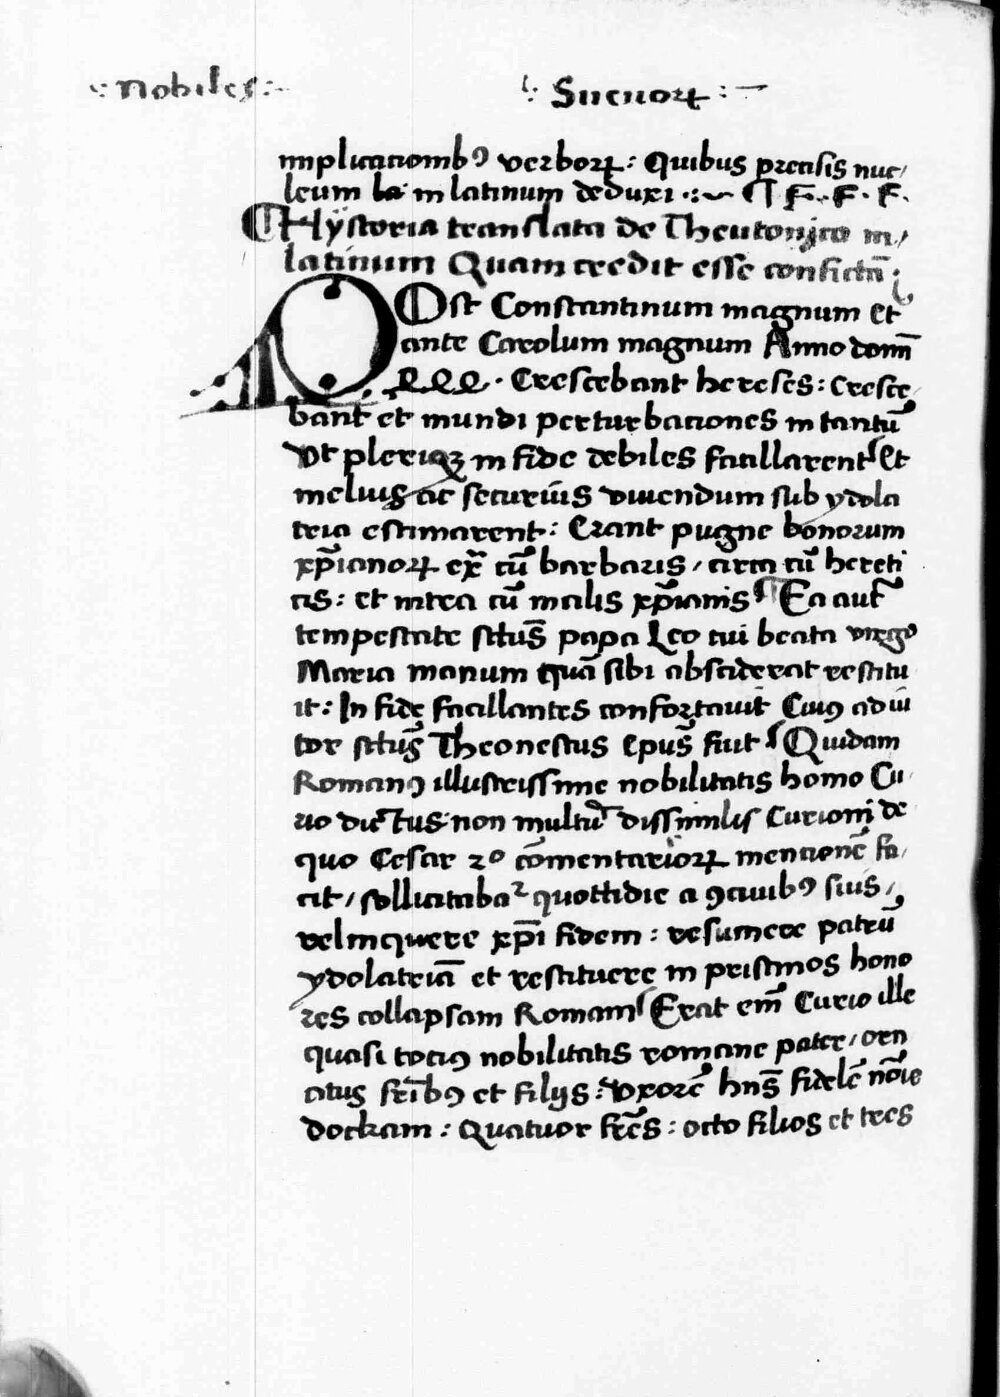 ·: Nobiles :·
·: Sueuoꝝ :·
implicationibꝰ verboꝝ : Quibus precisis nuc/
leum in latinum deduxi .:~ ¶ F. F. F.
¶ Hystoria translata de Theutonico in/
latinum Quam credit esse confictā ;
POst Constantinum magnum et
ante Carolum magnum Anno domī
CCCC · Crescebant hereses : Cresce/
bant et mundi perturbaciones in tantū
Vt pleriqꝫ in fide debiles facillarent et
melius ac securius viuendum sub ydola
tria estimarent : Erant pugne bonorum
xp̄ianoꝝ ex̄ cū barbaris / circa cū hereti
cis : et intra cū malis xp̄ianis ¶ Ea aut̄
tempestate sctūs papa Leo cui beata virgo
Maria manum quā sibi absciderat restitu
it : In fide facillantes confortauit Cuiꝰ adiu
tor sctūs Theonestus Epūs fuit ¶ Quidam
Romanꝰ illustrissime nobilitatis homo Cu/
rio dictus non multū dissimilis Curioni de
quo Cesar 2º cōmentarioꝝ mencionē fa/
cit / sollicitaba2 quottidie a ꝯciuibꝰ suis /
relinquere xp̄i fidem : resumere patrū
ydolatriā et restituere in pristinos hono
res collapsam Romam ¶ Erat em̄ Curio ille
quasi tociꝰ nobilitatis romane pater / orn
atus fr̄ibꝰ et filijs : Vxorē hn̄s fidelē nōie
dockam : Quatuor fr̄es : octo filios et tres